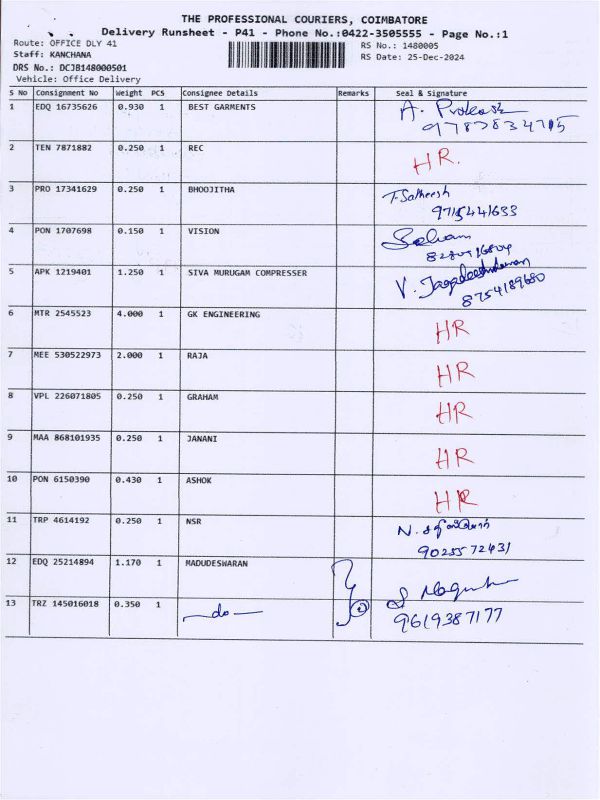 THE PROFESSIONAL COURIERS, COIMBATORE
Delivery Runsheet - P41 - Phone No.:0422-3505555 - Page No.:1
Route: OFFICE DLY 41 RS No.: 1480005
Staff: KANCHANA RS Date: 25-Dec-2024
DRS No.: DCJB148000501
Vehicle: Office Delivery
S No Consignment No Weight PCS Consignee Details Remarks Seal & Signature
1 EDQ 16735626 0.930 1 BEST GARMENTS A.
2 TEN 7871882 0.250 1 REC HR.
3 PRO 17341629 0.250 1 BHOOJITHA T. Satheesh
9715441633
4 PON 1707698 0.150 1 VISION
5 APK 1219401 1.250 1 SIVA MURUGAM COMPRESSER V.
8754189680
6 MTR 2545523 4.000 1 GK ENGINEERING HR
7 MEE 530522973 2.000 1 RAJA HR
8 VPL 226071805 0.250 1 GRAHAM HR
9 MAA 868101935 0.250 1 JANANI HR
10 PON 6150390 0.430 1 ASHOK HR
11 TRP 4614192 0.250 1 NSR N.
9025572431
12 EDQ 25214894 1.170 1 MADUDESWARAN
13 TRZ 145016018 0.350 1 do
9619387177